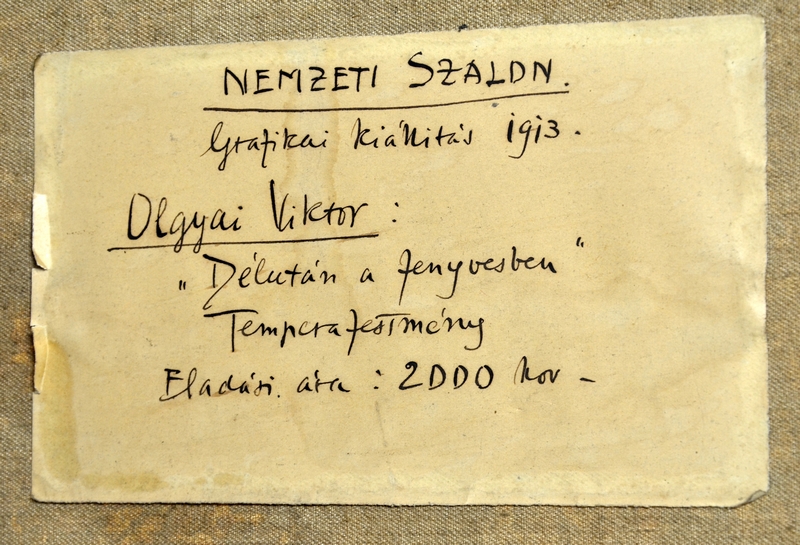 NEMZETI SZALON.
Grafikai kiállitás 1913.
Olgyai Viktor :
„Délután a fenyvesben"
Temperafestmény
Eladási ára : 2000 kor –